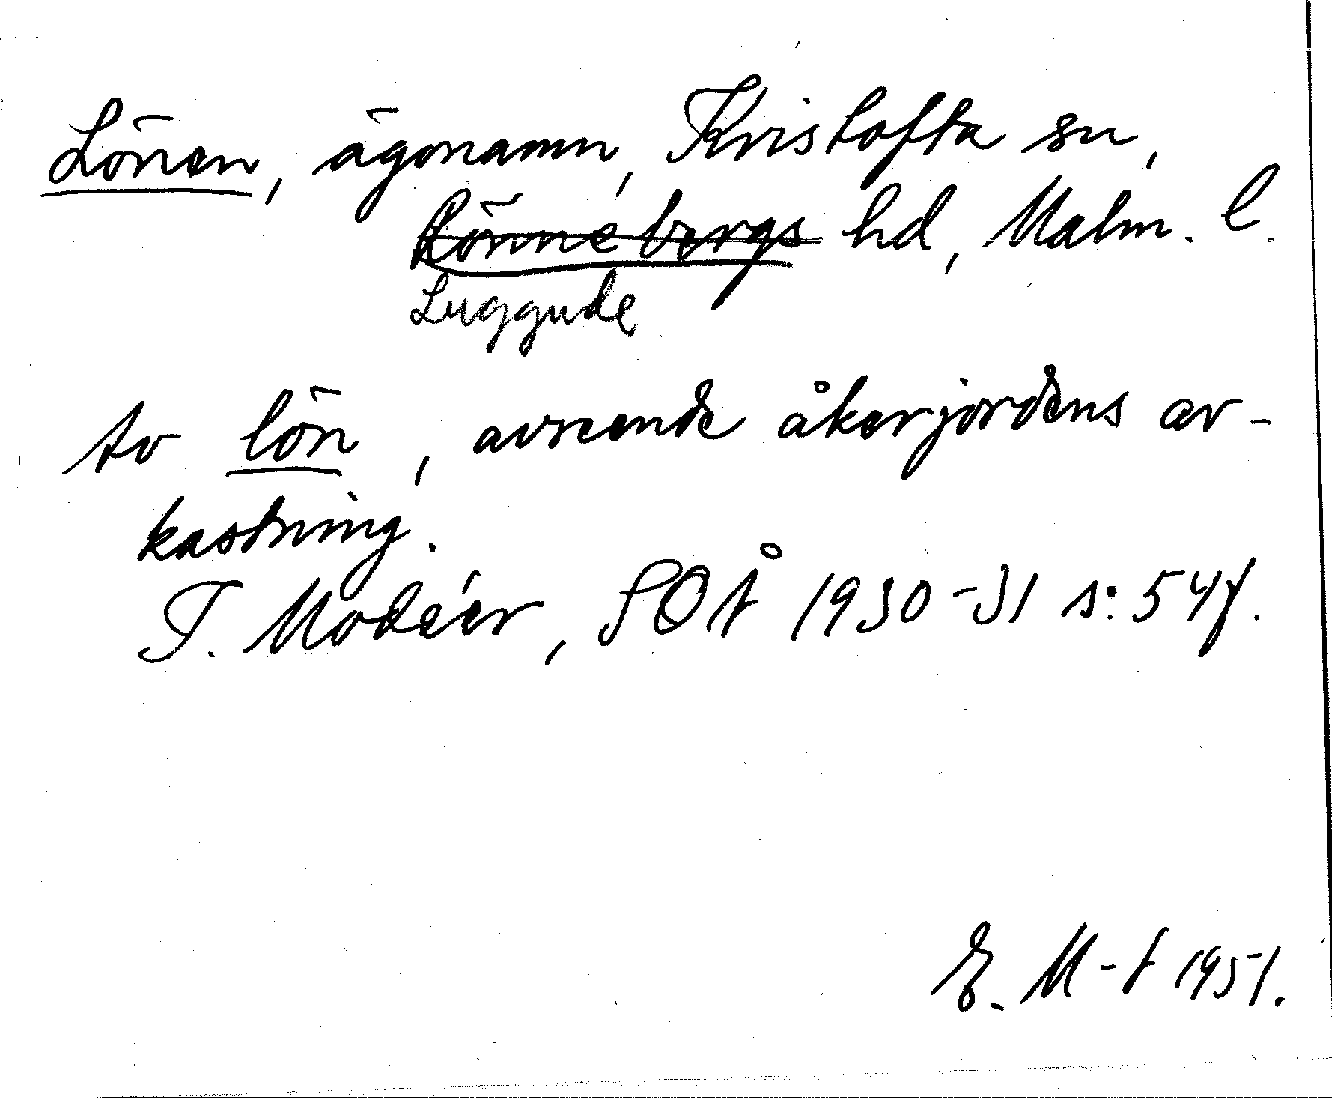 Lönen, ägonamn, Kvistofta sn,
Rönnebergs hd, Malm. l.
Luggude
to lön, avseende åkerjordens av-
kastning.
I. Modéer, SOÅ 1930-31 s: 54f.
E. M-t 1951.